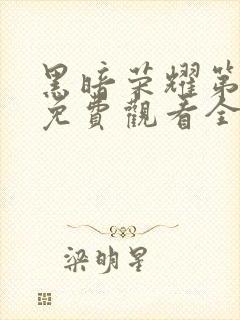 黑暗荣耀第
免費觀看全
梁明星